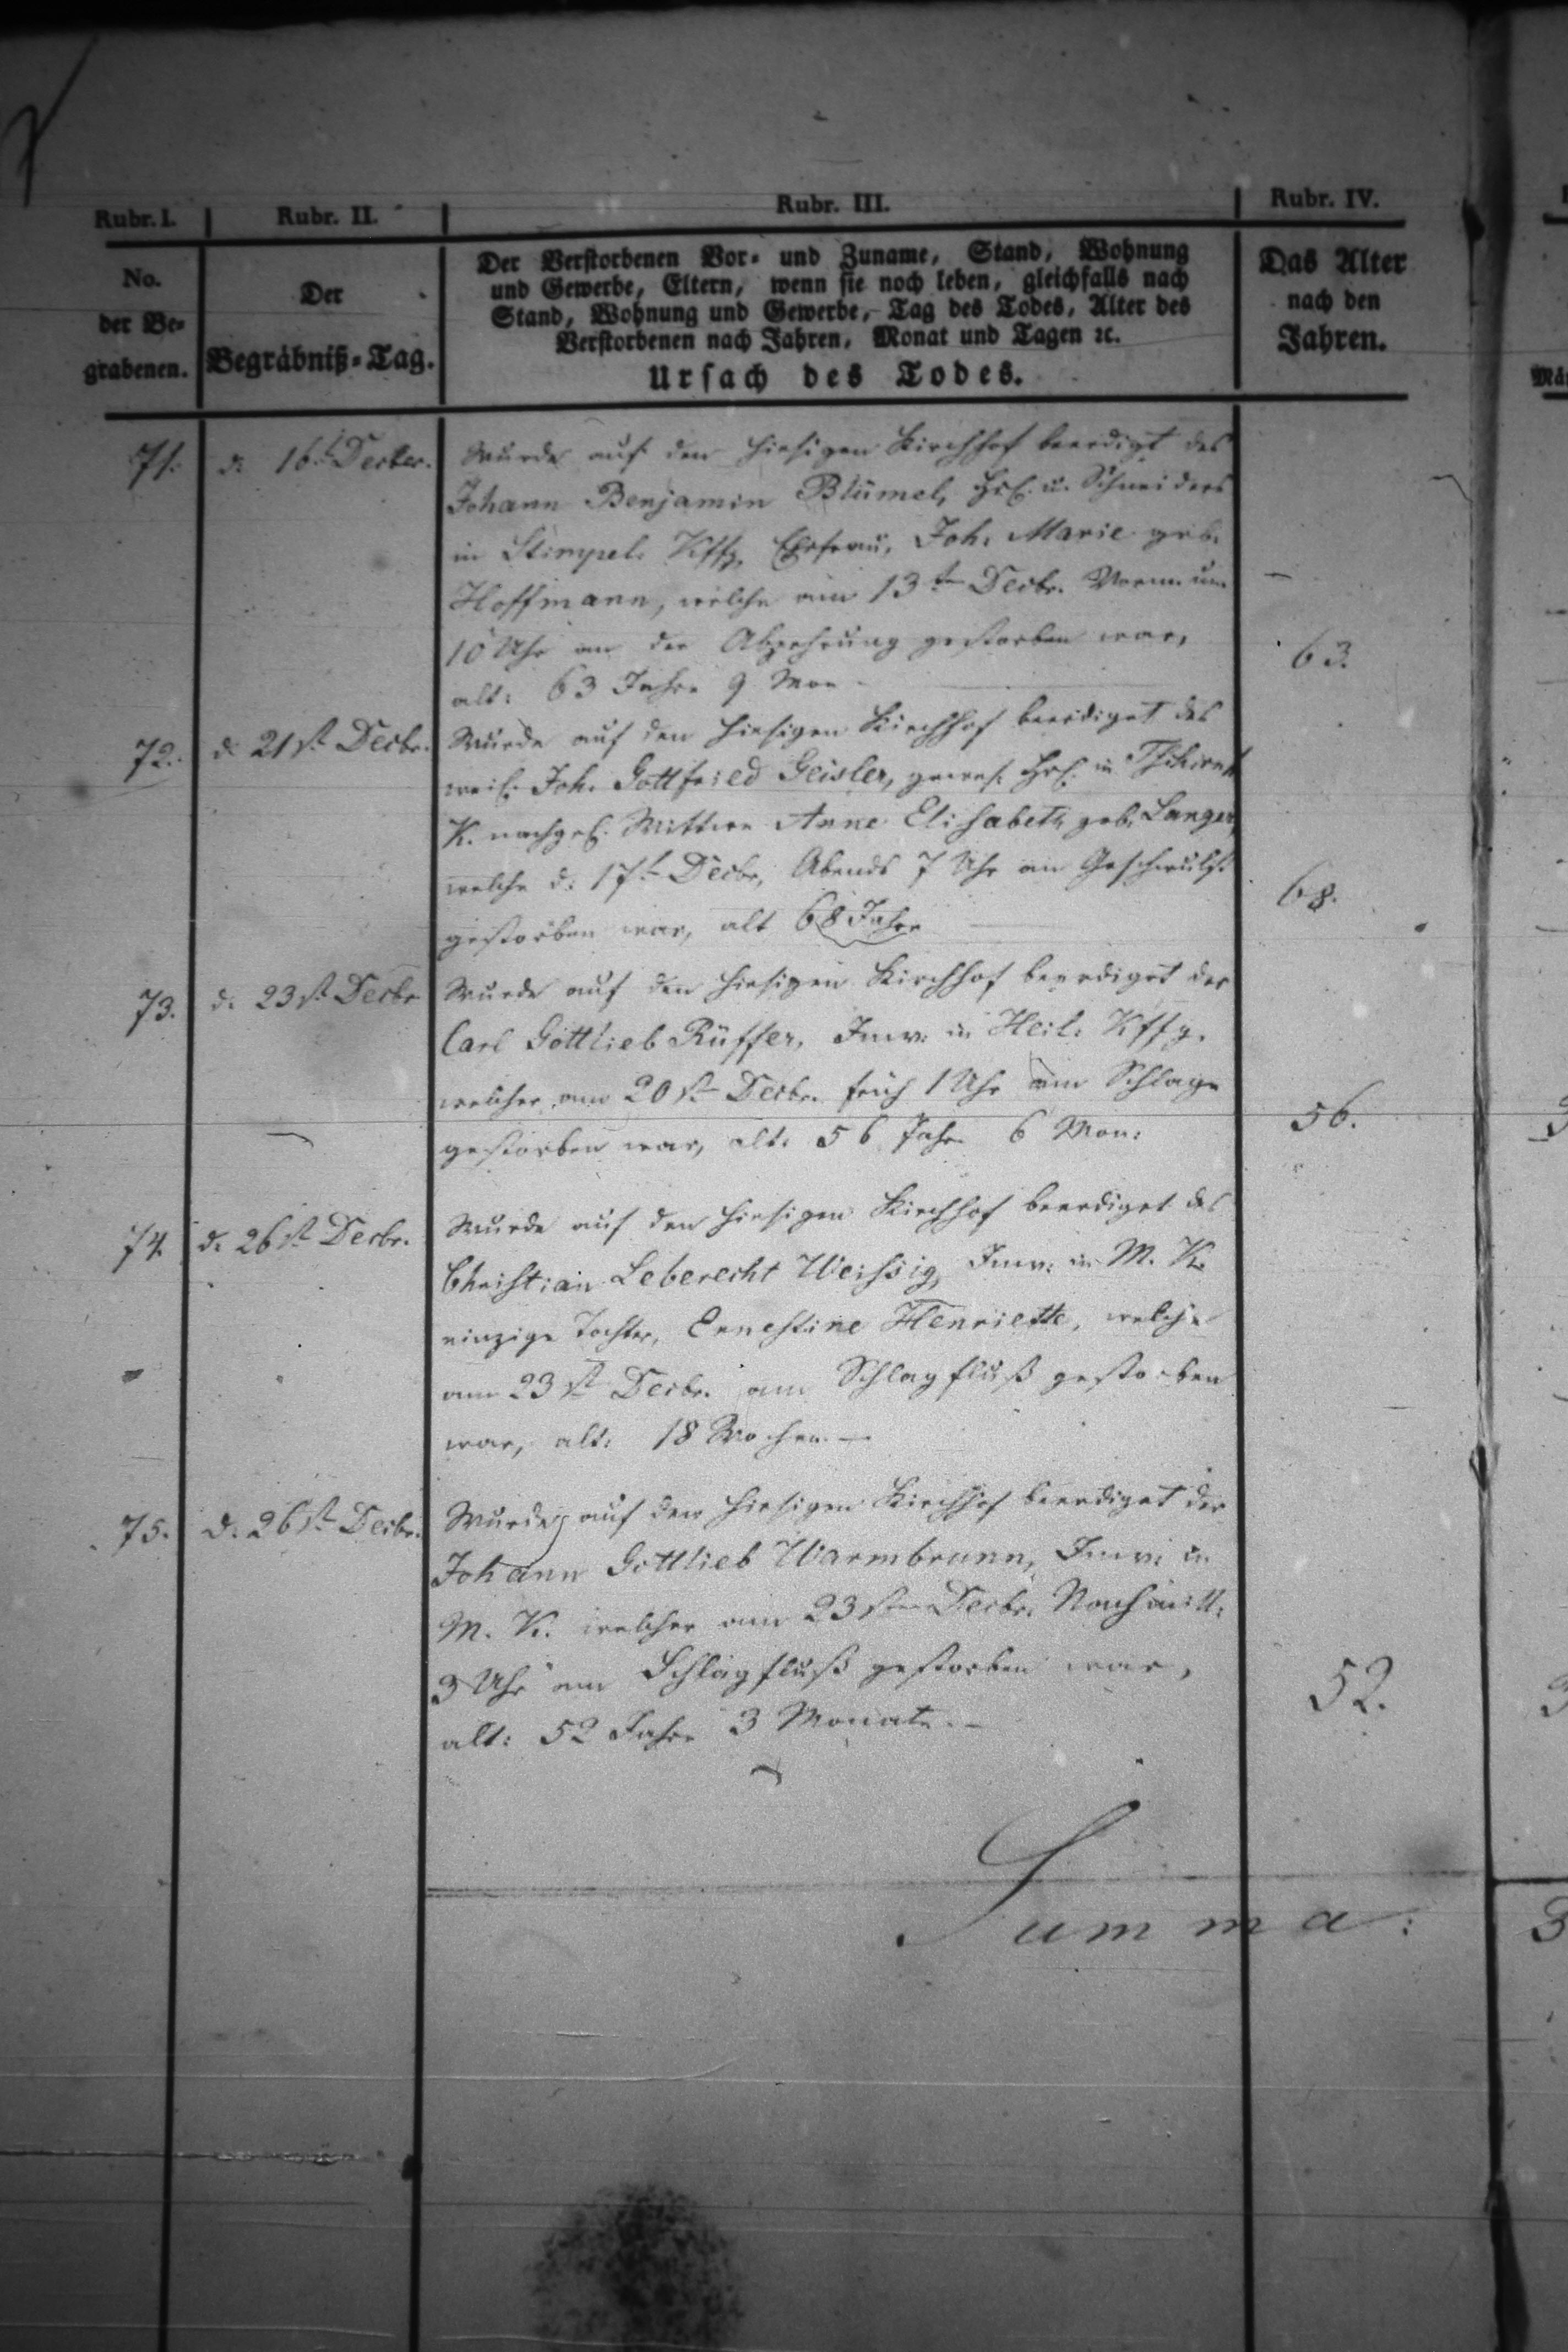 Rubr. I. Rubr. II. Rubr. III. Rubr. IV.
No.
der Be=
grabenen.
Der
Begräbniß=Tag.
Der Verstorbenen Vor= und Zuname, Stand, Wohnung
und Gewerbe, Eltern, wenn sie noch leben, gleichfalls nach
Stand, Wohnung und Gewerbe, Tag des Todes, Alter des
Verstorbenen nach Jahren, Monat und Tagen ꝛc.
Ursach des Todes.
Das Alter
nach den
Jahren.
71. d. 16t Decber. Wurde auf den hiesigen Kirchhof beerdigt des
Johann Benjamin Blümel, Hsl. u. Schneiders
in Stimpel. Kffg. Ehefrau, Joh. Marie geb.
Hoffmann, welche am 13ten Decbr. Vorm. um
10 Uhr an der Abzehrung gestorben war,
63.
alt: 63 Jahre 9 Mon
72. d. 21st Decbr. Wurde auf den hiesigen Kirchhof beerdiget des
weil. Joh. Gottfried Geisler, gewes. Hsl. in
K. nachgel. Wittwe Anne Elisabeth geb. Langer,
welche d. 17t Decbr, Abends 7 Uhr an Geschwulst
68.
gestorben war, alt 68 Jahre
73. d. 23st Decbr Wurde auf den hiesigen Kirchhof beerdiget der
Carl Gottlieb Rüffer, Inw: in Heil. Kffg.
welcher am 20st Decbr. früh 1 Uhr am Schlage
gestorben war, alt: 56 Jahr 6 Mon:
56.
74. d. 26st Decbr. Wurde auf den hiesigen Kirchhof beerdiget des
Christian Leberecht Weihsig, Inw: in M. K.
einzige Tochter, Ernestine Henriette, welche
am 23st Decbr. am Schlagfluß gestorben
war, alt: 18 Wochen. —
75. d. 26st Decbr. Wurde auf den hiesigen Kirchhof beerdiget der
Johann Gottlieb Warmbrunn, Inw: in
M. K. welcher am 23sten Decbr. Nachmitt.
3 Uhr am Schlagfluß gestorben war,
52.
alt: 52 Jahre 3 Monate. —
Summa: